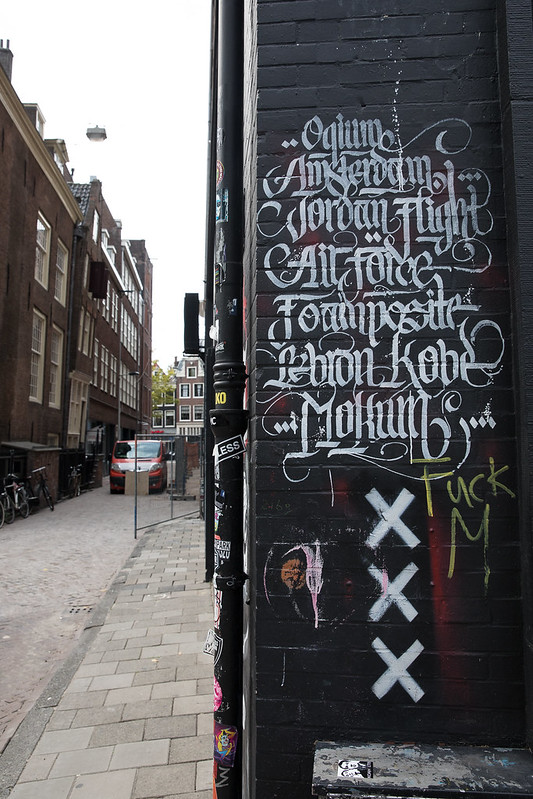 ..Ogium
Amsterdam
Jordan Flight
Air Force
Foamposite
Lebron Kobe
...Mokum...
Fuck
M
XXX
KO
LESS